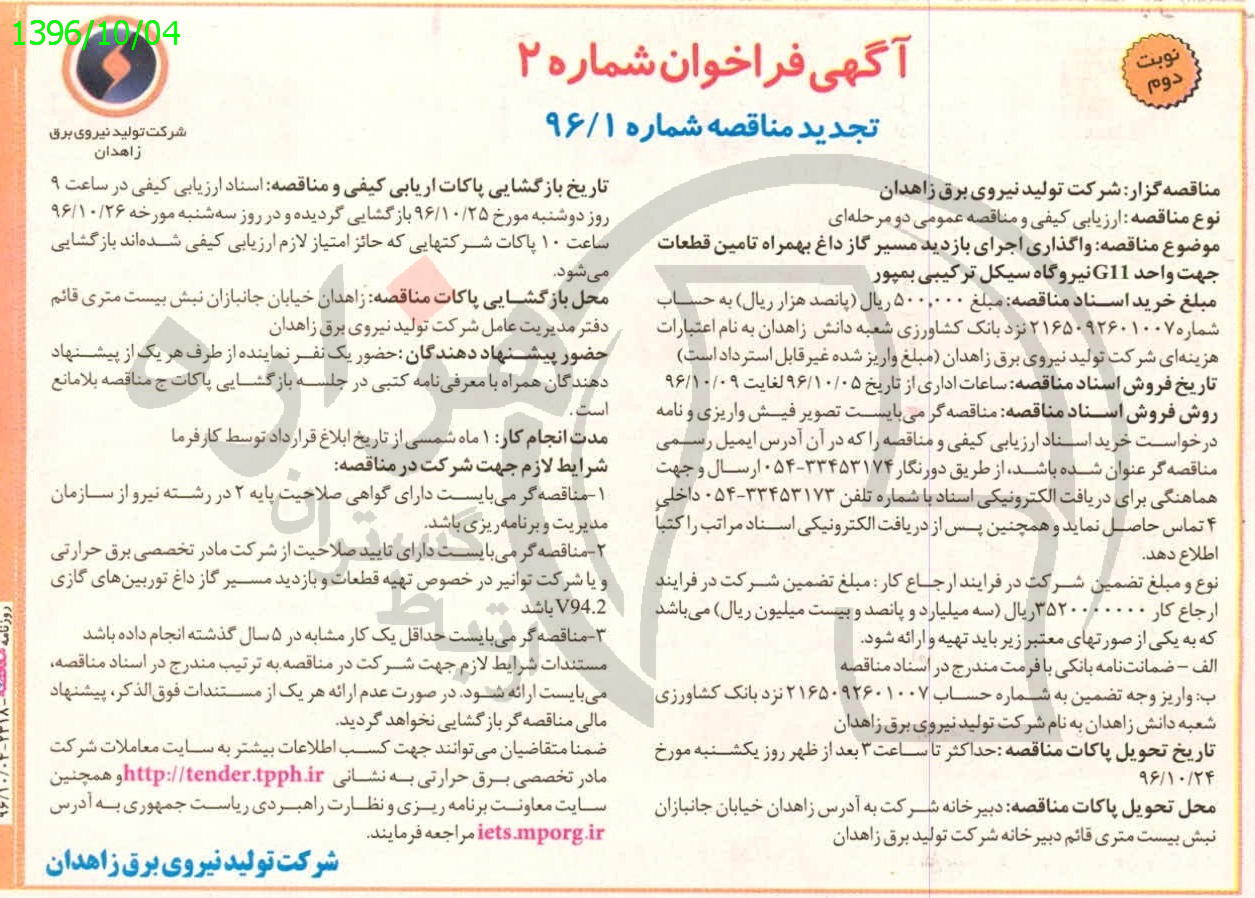 1396/10/04
نوبت
دوم
آگهی فراخوان شماره ۲
تجدید مناقصه شماره ۹۶/۱
شرکت تولید نیروی برق
زاهدان
مناقصه‌گزار: شرکت تولید نیروی برق زاهدان
نوع مناقصه: ارزیابی کیفی و مناقصه عمومی دو مرحله‌ای
موضوع مناقصه: واگذاری اجرای بازدید مسیر گاز داغ بهمراه تامین قطعات
جهت واحد G11 نیروگاه سیکل ترکیبی بمپور
مبلغ خرید اسناد مناقصه: مبلغ ۵۰۰,۰۰۰ ریال (پانصد هزار ریال) به حساب
شماره ۲۱۶۵۰۹۲۶۰۱۰۰۷ نزد بانک کشاورزی شعبه دانش زاهدان به نام اعتبارات
هزینه‌ای شرکت تولید نیروی برق زاهدان (مبلغ واریز شده غیرقابل استرداد است)
تاریخ فروش اسناد مناقصه: ساعات اداری از تاریخ ۹۶/۱۰/۰۵ لغایت ۹۶/۱۰/۰۹
روش فروش اسناد مناقصه: مناقصه‌گر می‌بایست تصویر فیش واریزی و نامه
درخواست خرید اسناد ارزیابی کیفی و مناقصه را که در آن آدرس ایمیل رسمی
مناقصه‌گر عنوان شده باشد، از طریق دورنگار ۳۳۴۵۳۱۷۴-۰۵۴ ارسال و جهت
هماهنگی برای دریافت الکترونیکی اسناد با شماره تلفن ۳۳۴۵۳۱۷۳-۰۵۴ داخلی
۴ تماس حاصل نماید و همچنین پس از دریافت الکترونیکی اسناد مراتب را کتباً
اطلاع دهد.
نوع و مبلغ تضمین شرکت در فرایند ارجاع کار: مبلغ تضمین شرکت در فرایند
ارجاع کار ۳۵۲۰۰۰۰۰۰۰ ریال (سه میلیارد و پانصد و بیست میلیون ریال) می‌باشد
که به یکی از صورتهای معتبر زیر باید تهیه و ارائه شود.
الف – ضمانت‌نامه بانکی با فرمت مندرج در اسناد مناقصه
ب: واریز وجه تضمین به شماره حساب ۲۱۶۵۰۹۲۶۰۱۰۰۷ نزد بانک کشاورزی
شعبه دانش زاهدان به نام شرکت تولید نیروی برق زاهدان
تاریخ تحویل پاکات مناقصه: حداکثر تا ساعت ۳ بعد از ظهر روز یکشنبه مورخ
۹۶/۱۰/۲۴
محل تحویل پاکات مناقصه: دبیرخانه شرکت به آدرس زاهدان خیابان جانبازان
نبش بیست متری قائم دبیرخانه شرکت تولید برق زاهدان
تاریخ بازگشایی پاکات اریابی کیفی و مناقصه: اسناد ارزیابی کیفی در ساعت ۹
روز دوشنبه مورخ ۹۶/۱۰/۲۵ بازگشایی گردیده و در روز سه‌شنبه مورخه ۹۶/۱۰/۲۶
ساعت ۱۰ پاکات شرکتهایی که حائز امتیاز لازم ارزیابی کیفی شده‌اند بازگشایی
می‌شود.
محل بازگشایی پاکات مناقصه: زاهدان خیابان جانبازان نبش بیست متری قائم
دفتر مدیریت عامل شرکت تولید نیروی برق زاهدان
حضور پیشنهاد دهندگان: حضور یک نفر نماینده از طرف هر یک از پیشنهاد
دهندگان همراه با معرفی‌نامه کتبی در جلسه بازگشایی پاکات ج مناقصه بلامانع
است.
مدت انجام کار: ۱ ماه شمسی از تاریخ ابلاغ قرارداد توسط کارفرما
شرایط لازم جهت شرکت در مناقصه:
۱-مناقصه‌گر می‌بایست دارای گواهی صلاحیت پایه ۲ در رشته نیرو از سازمان
مدیریت و برنامه‌ریزی باشد.
۲-مناقصه‌گر می‌بایست دارای تایید صلاحیت از شرکت مادر تخصصی برق حرارتی
و یا شرکت توانیر در خصوص تهیه قطعات و بازدید مسیر گاز داغ توربین‌های گازی
V94.2 باشد
۳-مناقصه‌گر می‌بایست حداقل یک کار مشابه در ۵ سال گذشته انجام داده باشد
مستندات شرایط لازم جهت شرکت در مناقصه به ترتیب مندرج در اسناد مناقصه،
می‌بایست ارائه شود. در صورت عدم ارائه هر یک از مستندات فوق‌الذکر، پیشنهاد
مالی مناقصه‌گر بازگشایی نخواهد گردید.
ضمنا متقاضیان می‌توانند جهت کسب اطلاعات بیشتر به سایت معاملات شرکت
مادر تخصصی برق حرارتی به نشانی http://tender.tpph.ir و همچنین
سایت معاونت برنامه ریزی و نظارت راهبردی ریاست جمهوری به آدرس
iets.mporg.ir مراجعه فرمایند.
شرکت تولید نیروی برق زاهدان
هزاره
گستران
ارتباط
روزنامه